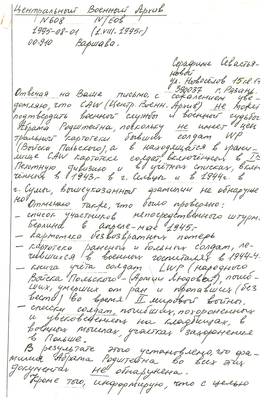 Центральный Военный Архив
N608 N/608
1995-08-01 (1.VIII.1995г)
00-910 Варшава.
Серафиме Севастья-
новой
ул. Новоселов
390037 г. Рязань
Отвечая на Ваше письмо, с сожалением уве-
домляю, что САW (Центр. Военн. Архив) не может
подтвердить военной службы и военной судьбы
Абрама Родштейна, поскольку не имеет цен-
тральной картотеки бывших солдат WP
(Войска Польского), а в находящейся в храни-
лище САW картотеке солдат, включенных в I
Пехотную дивизию и в штатных списках, вклю-
ченных в 1943г. в г. Сельцы и в 1944г. в
г. Сумы, вышеуказанной фамилии не обнаруже
но.
Отмечаю также, что было проверено:
- список участников непосредственного штурма
Берлина в апреле-мае 1945г.
- картотека безвозвратных потерь
- картотека раненых и больных солдат, ле-
чившихся в военных госпиталях в 1944-4
- книга учёта солдат LWP (народного
Войска Польского - Армии Людовой), погиб-
ших, умерших от ран и пропавших (без
вести) во время II мировой войны.
- списки солдат, погибших, похороненных
и увековеченных на кладбищах, в
военных могилах, участках захоронения
в Польше.
В результате этого установлено, что фа-
милия Абрама Родштейна во всех этих
документах не обнаружена.
Кроме того, информирую, что с целью